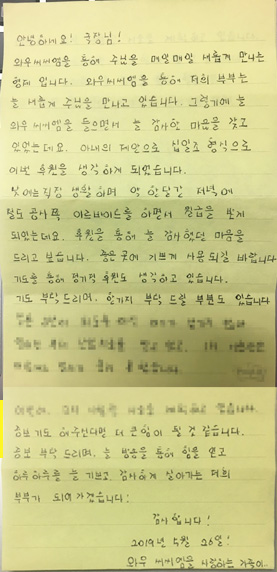 안녕하세요! 국장님!
와우씨씨엠을 통해 주님을 매일매일 새롭게 만나는
형제 입니다. 와우씨씨엠을 통해 저희 부부는
늘 새롭게 주님을 만나고 있습니다. 그렇기에 늘
와우 씨씨엠을 들으면서 늘 감사한 마음을 갖고
있었는데요. 아내의 제안으로 십일조 형식으로
이번 후원을 생각하게 되었습니다.
직장 생활하며 약 한달간 저녁에
아르바이트를 하면서 월급을 받게
되었는데요. 후원을 통해 늘 감사했던 마음을
드리고 보습니다. 좋은 곳에 기쁘게 사용되길 바랍니다
기도를 통해 정기적 후원도 생각하고 있습니다.
기도 부탁드리며, 한가지 부탁 드릴 부분도 있습니다
중보기도 해주신다면 더 큰힘이 될 것 같습니다.
중보 부탁드리며, 늘 방송을 통해 힘을 얻고
하루하루를 늘 기쁘고, 감사하게 살아가는 저희
부부가 되어가겠습니다!
감사합니다!
2019년 5월 26일!
와우 씨씨엠을 사랑하는 가족이..